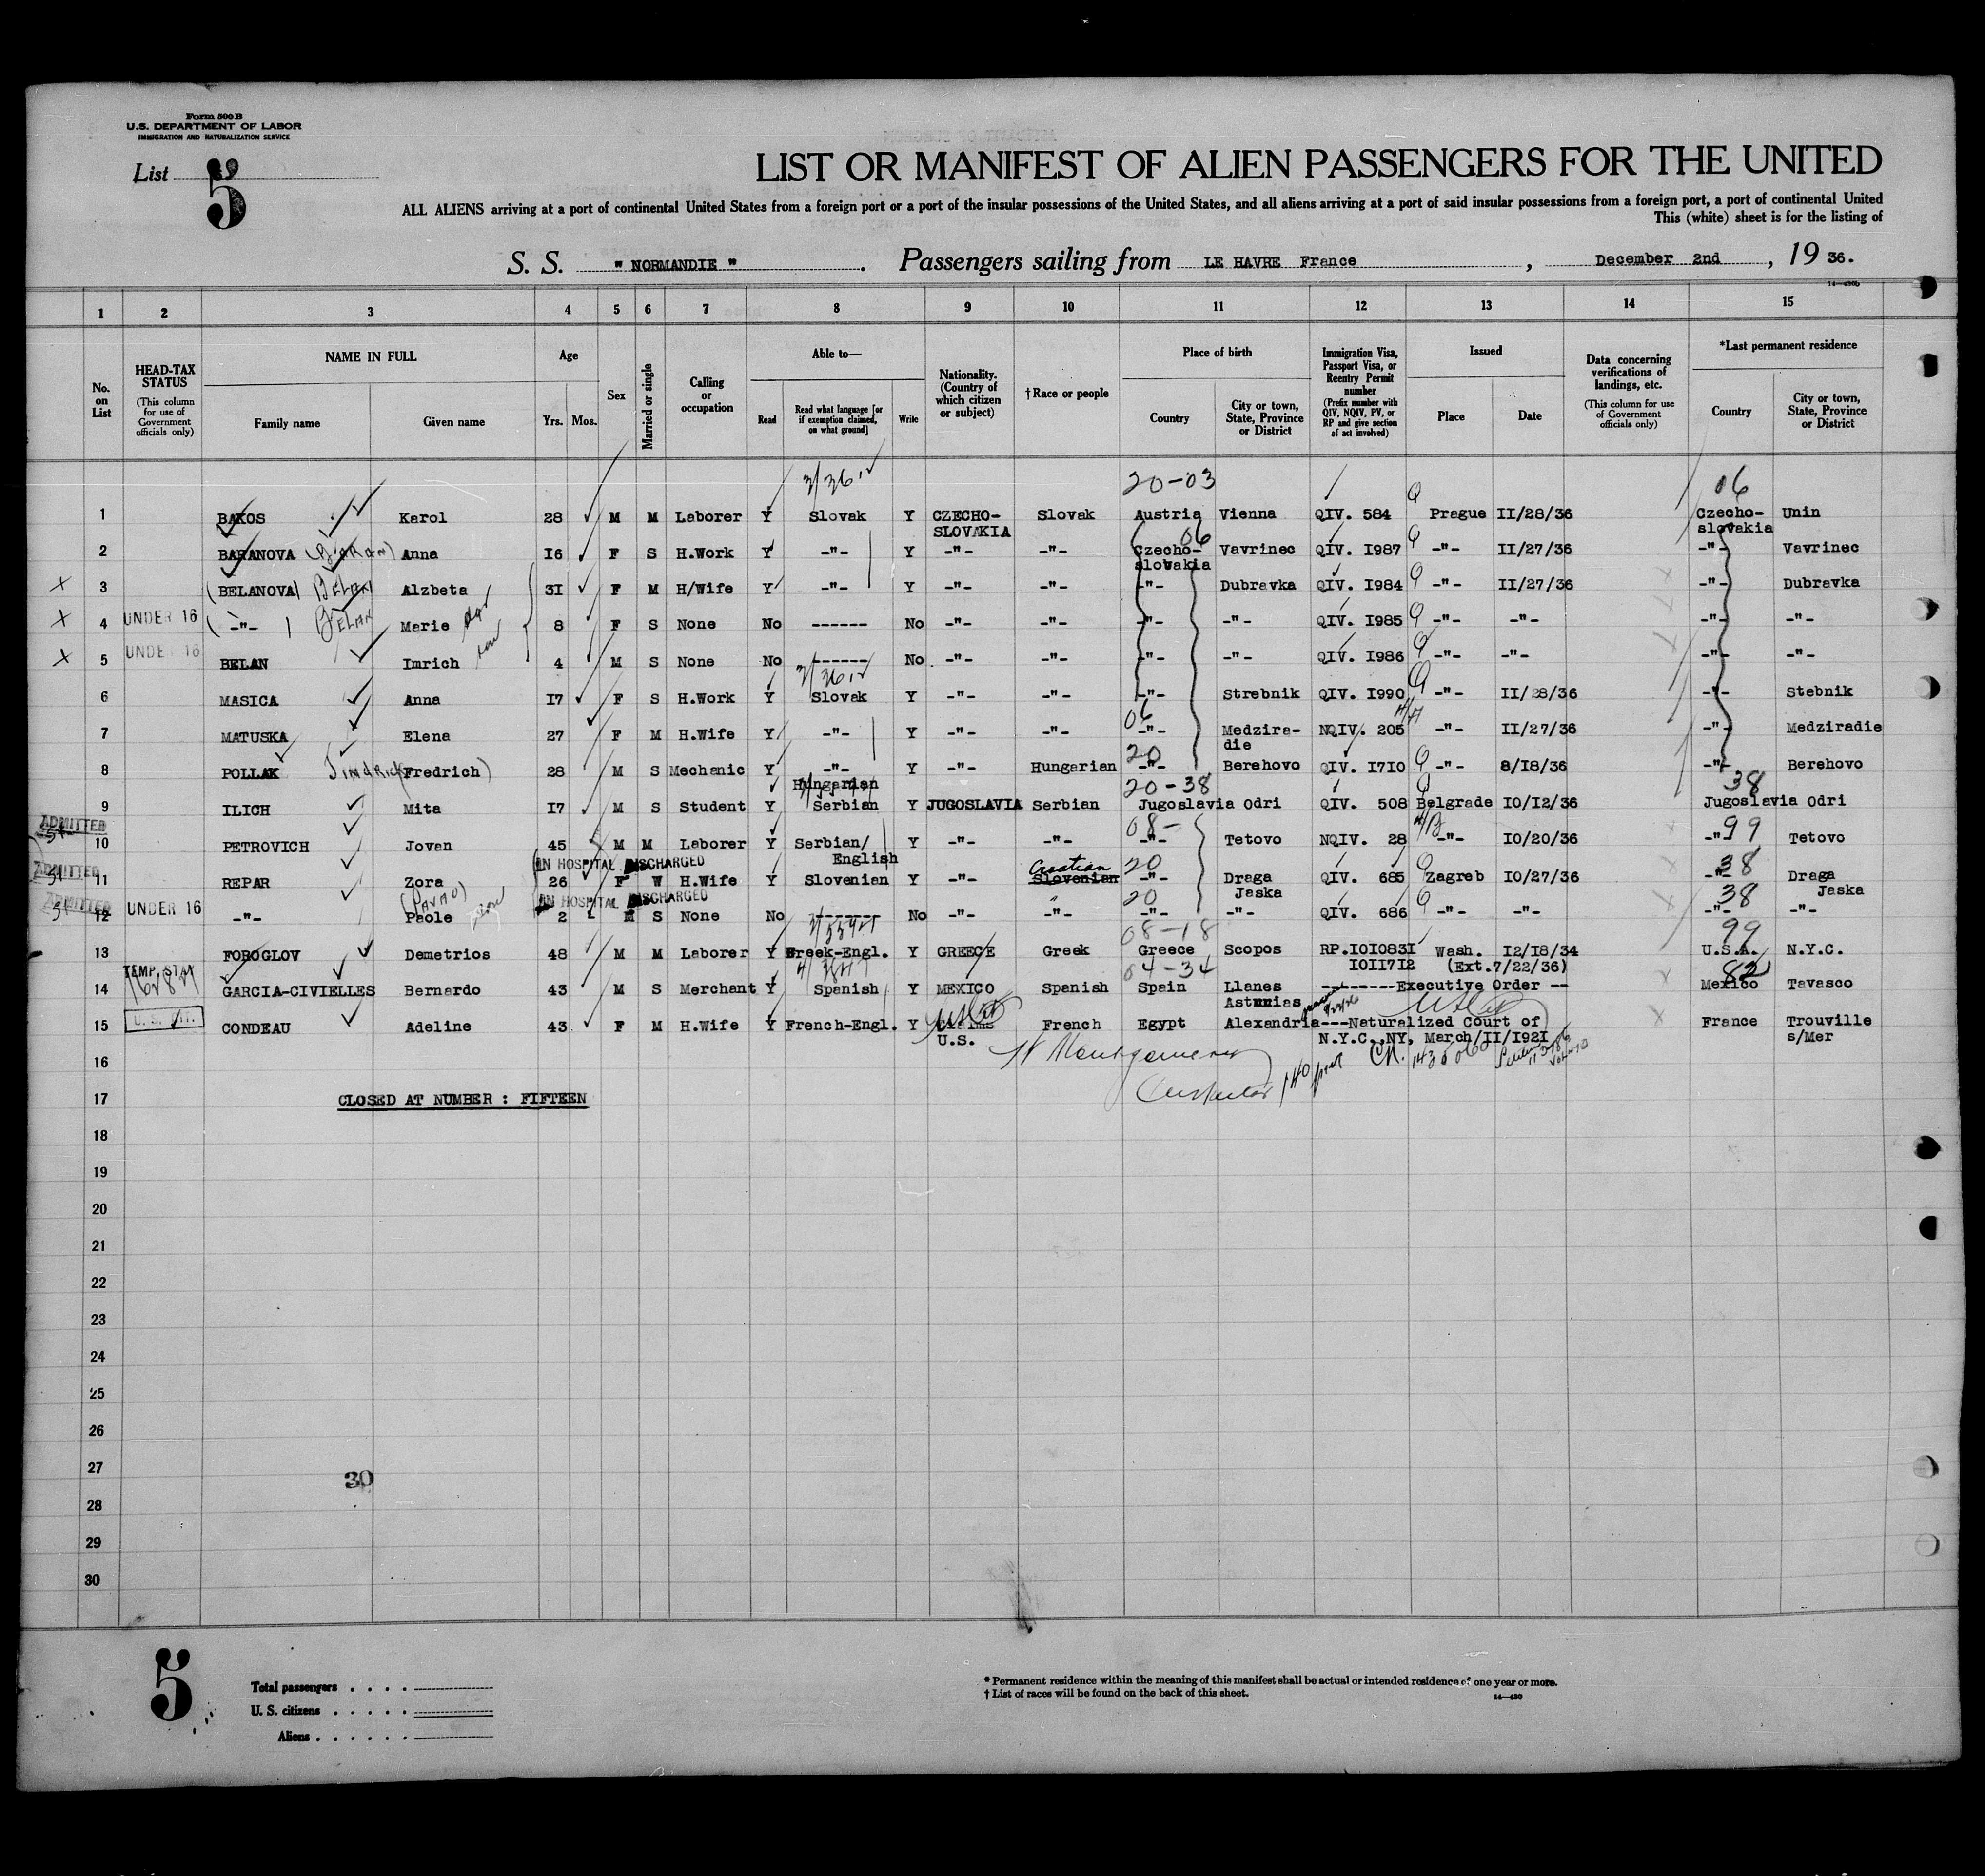 Form 500 B
U.S. DEPARTMENT OF LABOR
IMMIGRATION AND NATURALIZATION SERVICE
List 5
LIST OR MANIFEST OF ALIEN PASSENGERS FOR THE UNITED
ALL ALIENS arriving at a port of continental United States from a foreign port or a port of the insular possessions of the United States, and all aliens arriving at a port of said insular possessions from a foreign port, a port of continental United
This (white) sheet is for the listing of
S. S. " NORMANDIE ". Passengers sailing from LE HAVRE France, December 2nd, 19 36.
1 2 3 4 5 6 7 8 9 10 11 12 13 14 15
No. on List
HEAD-TAX STATUS (This column for use of Government officials only)
NAME IN FULL Family name Given name
Age Yrs. Mos.
Sex
Married or single
Calling or occupation
Able to— Read Read what language [or if exemption claimed, on what ground] Write
Nationality. (Country of which citizen or subject)
†Race or people
Place of birth Country City or town, State, Province or District
Immigration Visa, Passport Visa, or Reentry Permit number (Prefix number with QIV, NQIV, PV, or RP and give section of act involved)
Issued Place Date
Data concerning verifications of landings, etc. (This column for use of Government officials only)
*Last permanent residence Country City or town, State, Province or District
20-03 06
1 BAKOS Karol 28 M M Laborer Y Slovak Y CZECHO-SLOVAKIA Slovak Austria Vienna QIV. 584 Prague II/28/36 Czecho-slovakia Unin
06
2 BARANOVA (BARAN) Anna I6 F S H.Work Y -"- Y -"- -"- Czecho-slovakia Vavrinec QIV. I987 -"- II/27/36 -"- Vavrinec
3 (BELANOVA) BELAN Alzbeta 3I F M H/Wife Y -"- Y -"- -"- -"- Dubravka QIV. I984 -"- II/27/36 -"- Dubravka
4 UNDER 16 ( -"- ) BELAN Marie 8 F S None No ------ No -"- -"- -"- -"- QIV. I985 -"- -"- -"- -"-
5 UNDER 16 BELAN Imrich 4 M S None No ------ No -"- -"- -"- -"- QIV. I986 -"- -"- -"- -"-
6 MASICA Anna I7 F S H.Work Y Slovak Y -"- -"- -"- Strebnik QIV. I990 -"- II/28/36 -"- Stebnik
06
7 MATUSKA Elena 27 F M H.Wife Y -"- Y -"- -"- -"- Medzira-die NQIV. 205 -"- II/27/36 -"- Medziradie
20
8 POLLAK Jindrich (Fredrich) 28 M S Mechanic Y -"- Hungarian Y -"- Hungarian -"- Berehovo QIV. I7I0 -"- 8/I8/36 -"- Berehovo
20-38 38
9 ILICH Mita I7 M S Student Y Serbian Y JUGOSLAVIA Serbian Jugoslavia Odri QIV. 508 Belgrade I0/I2/36 Jugoslavia Odri
08- 99
ADMITTED
10 PETROVICH Jovan 45 M M Laborer Y Serbian/English Y -"- -"- -"- Tetovo NQIV. 28 -"- I0/20/36 -"- Tetovo
IN HOSPITAL DISCHARGED Croatian 20 38
ADMITTED
11 REPAR Zora 26 F W H.Wife Y Slovenian Y -"- Slovenian -"- Draga Jaska QIV. 685 Zagreb I0/27/36 -"- Draga Jaska
(PAVAO) IN HOSPITAL DISCHARGED 20 38
ADMITTED
12 UNDER 16 -"- Paole 2 M S None No ------ No -"- -"- -"- -"- QIV. 686 -"- -"- -"- -"-
08-18 99
13 FOROGLOV Demetrios 48 M M Laborer Y Greek-Engl. Y GREECE Greek Greece Scopos RP.I0I083I I0II7I2 Wash. I2/I8/34 (Ext.7/22/36) U.S.A. N.Y.C.
TEMP. STAY 04-34 82
14 GARCIA-CIVIELLES Bernardo 43 M S Merchant Y Spanish Y MEXICO Spanish Spain Llanes Asturias --------Executive Order -- Mexico Tavasco
15 CONDEAU Adeline 43 F M H.Wife Y French-Engl. Y U.S. French Egypt Alexandria---Naturalized Court of N.Y.C.,NY, March/II/I92I France Trouville s/Mer
16
17 CLOSED AT NUMBER : FIFTEEN
18
19
20
21
22
23
24
25
26
27
30
28
29
30
5
Total passengers
U. S. citizens
Aliens
* Permanent residence within the meaning of this manifest shall be actual or intended residence of one year or more.
† List of races will be found on the back of this sheet.
14—430